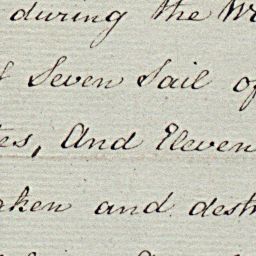 during the Wr
f Seven Sail of
tes, And Eleven
aken and destr